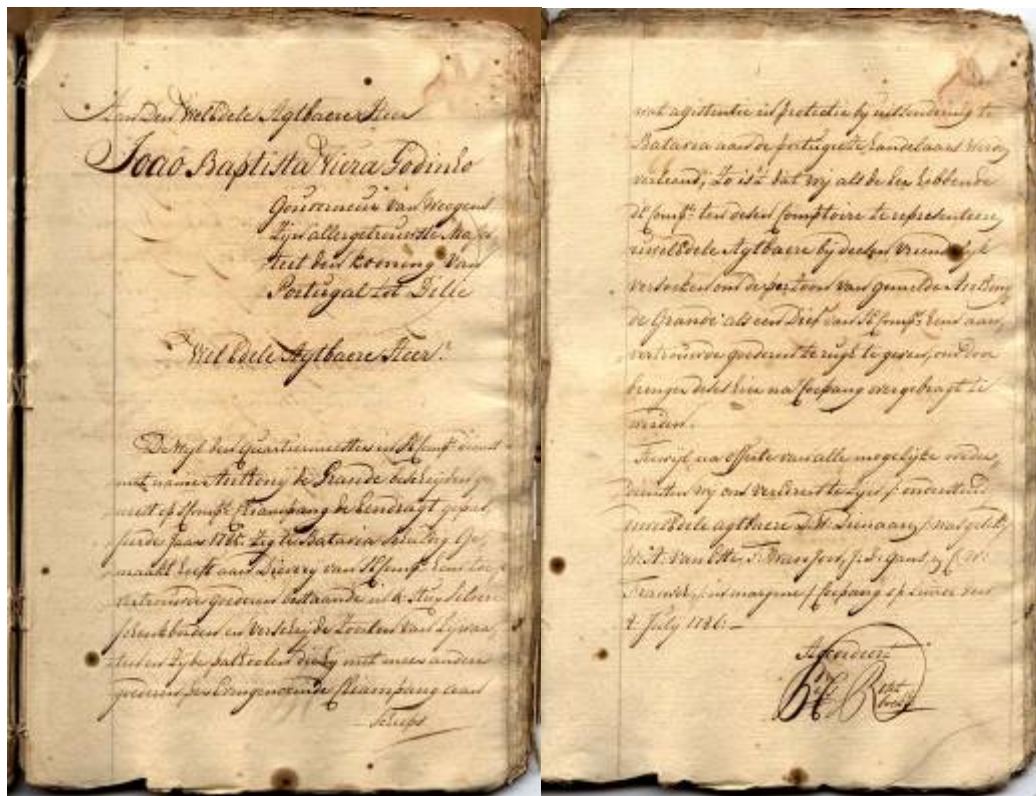 Aan Den WelEdele Agtbaere Heer
Joaõ Baptista Viera Godinho
Gouverneur van Weegens
Zijn allergetrouwste Majes
teit den Koning van
Portugal tot Dillie
WelEdele Agtbaere Heer!
De Wijl den Quartiermeester in SE Comps dienst
met name Anthonij de Grande bescheijden ge
weest op Comps Chiampang de Eendragt gepas
seerde Jaar 1785 zig te Batavia schuldig ge
maakt heeft aan Dieverij van SE Comps hem toe
vertrouwde goederen bestaande in stux silvere
schenkborden en verscheijde zoorten van Lijwaa
ten en zijde patholen die hij met meer andere
goederen per Evengenoemde Chiampang aan
Scheeps
wat assistentie en protectie bij uitsending te
Batavia aan de portugeese handelaars werden
verleend; zo is't dat wij als de Eer hebbende
d'E Comps ten desen Comptoire te representeeren
uwelEdele Agtbaere bij deesen vriendelijk
versoeken om de persoon van gemelde Anthonij
de Grande als een Dief van SE Comps hem aan
vertrouwde goederen te rugh te geven, om door
brenger deses hier na Coepang overgebragt te
werden.
Terwijl na offerte van alle mogelijke weder
diensten wij ons vereeren te zijn /onderstond/
uwelEdele agtbaere D:W: Dienaaren /was getekt/
W: A: van Este, T: Fransen, J: D: Gants, en C: W:
/in margine/ Coepang op Timor den
2 July 1786:—
Accordeert